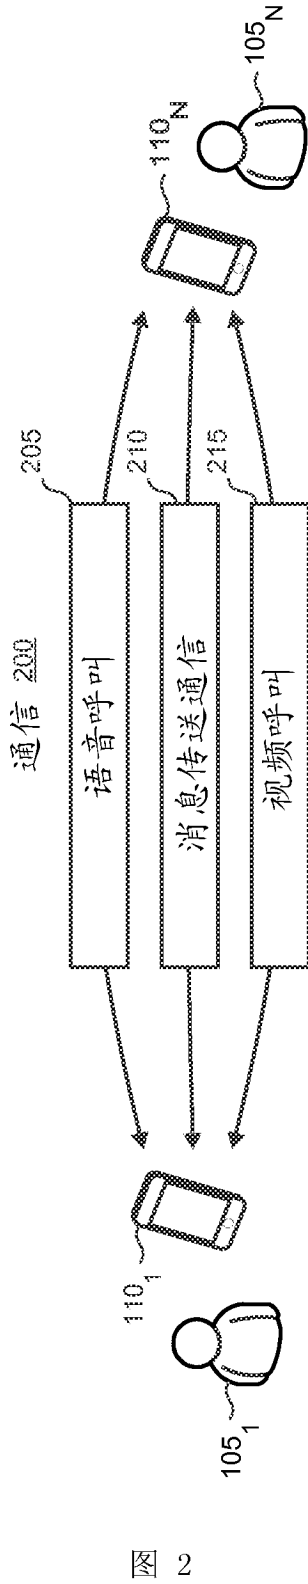 通信 200
205
语音呼叫
210
消息传送通信
215
视频呼叫
110₁
105₁
110N
105N
图 2